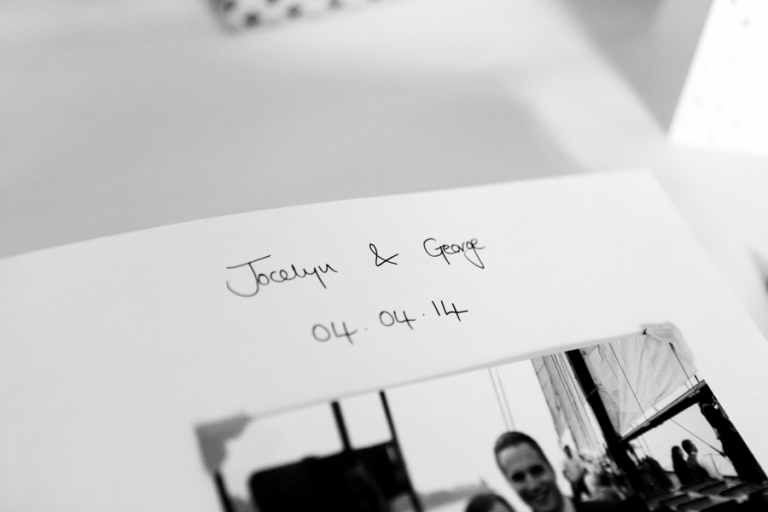 Jocelyn & George
04.04.14